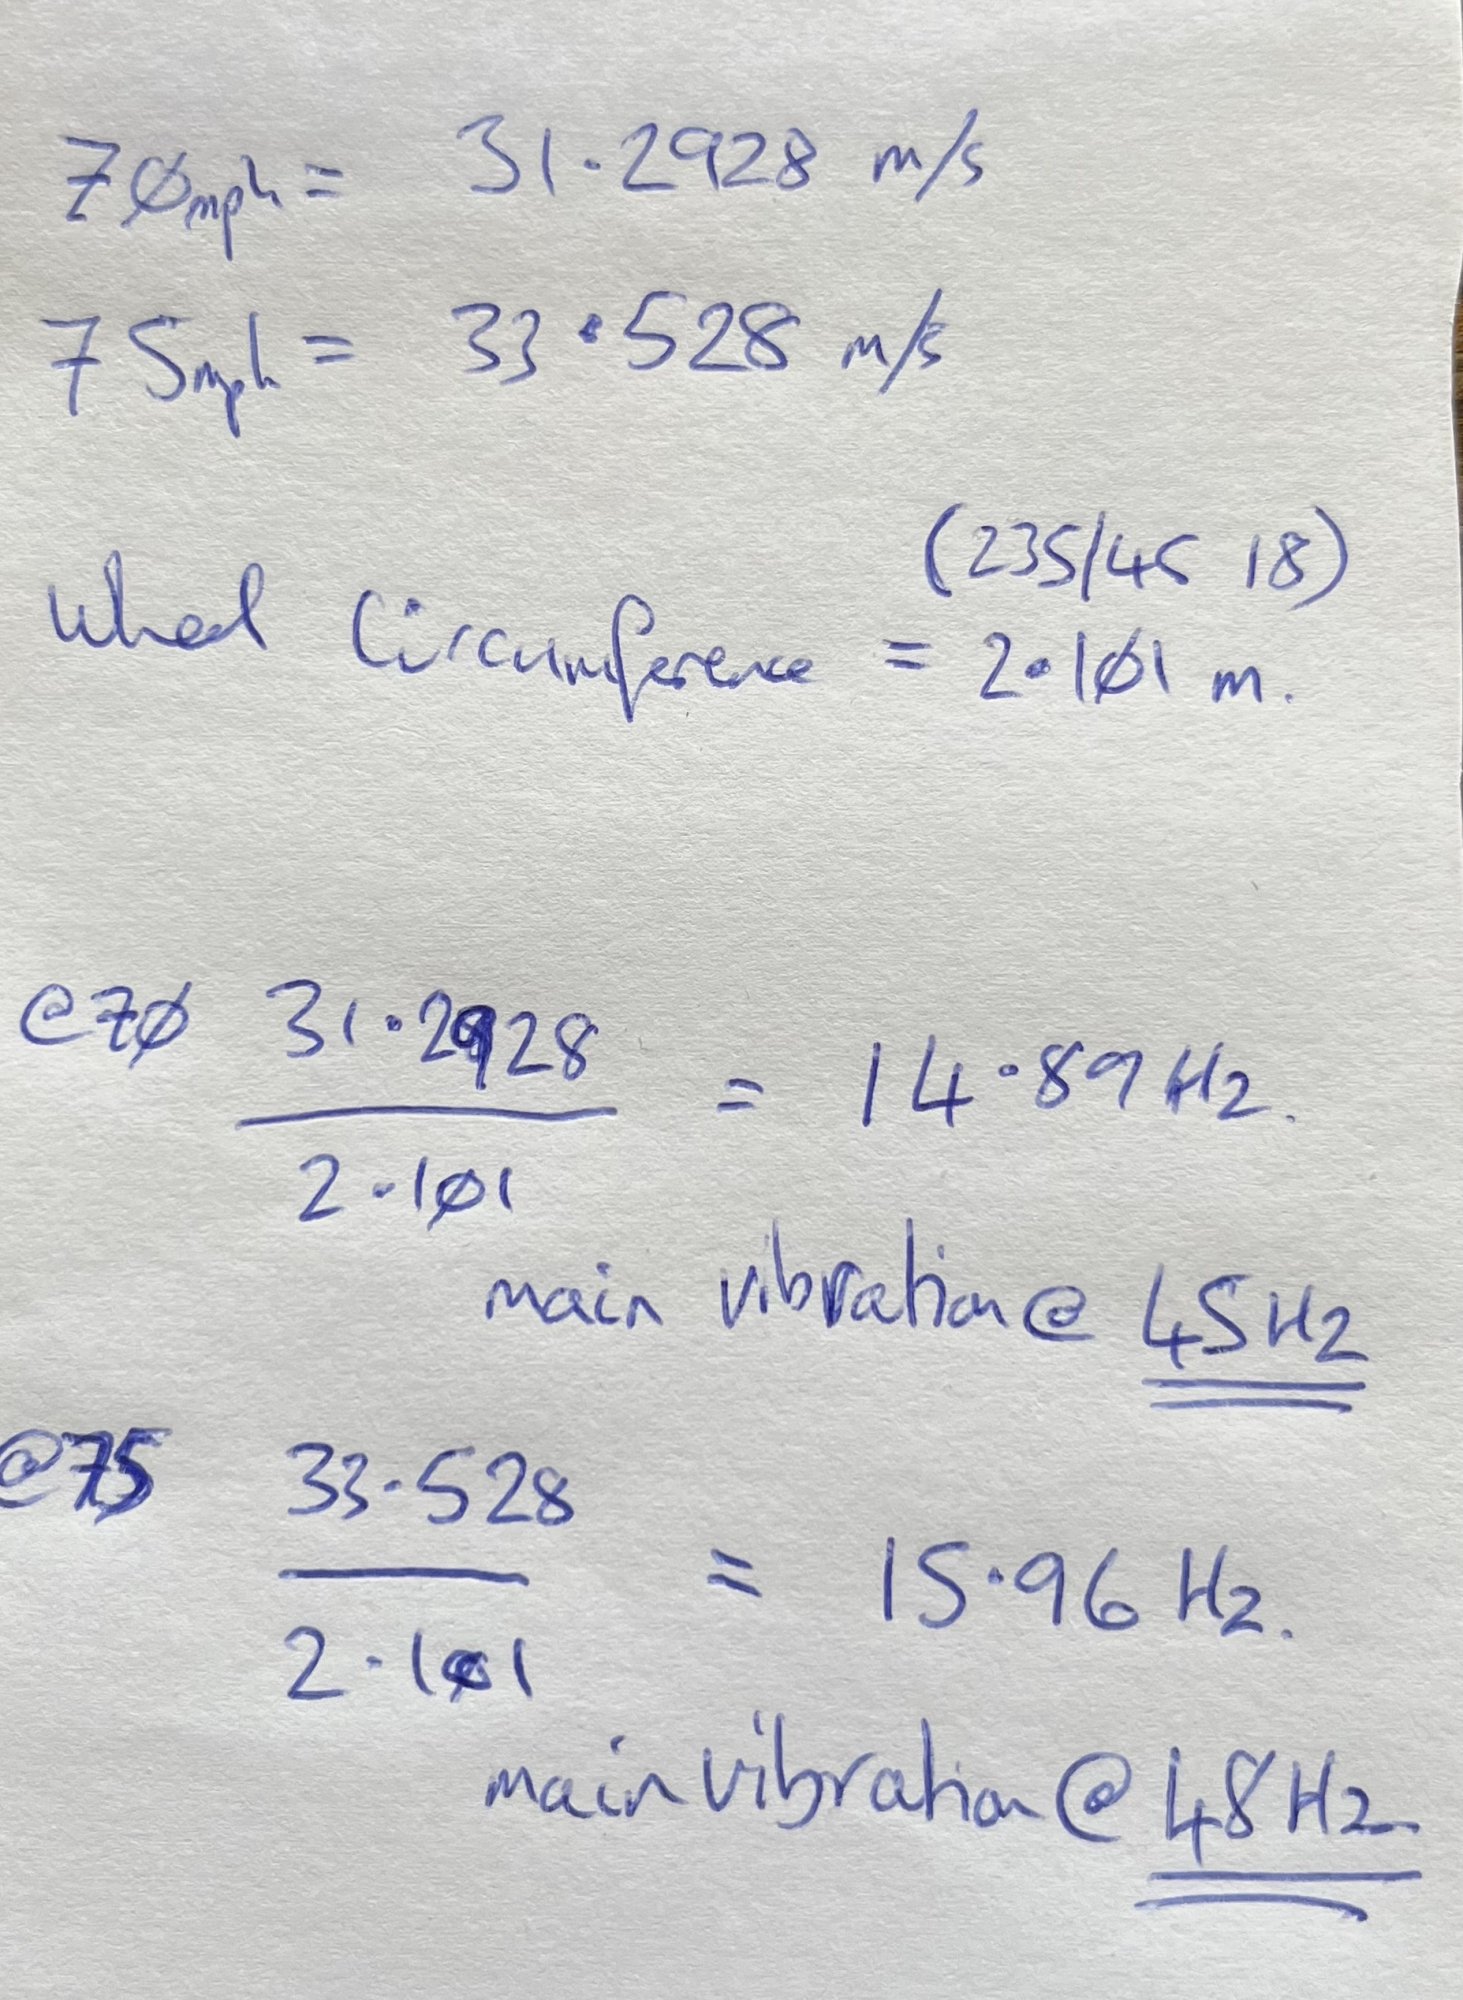 7Ømph = 31.2928 m/s
75mph = 33.528 m/s
(235/45 18)
Wheel Circumference = 2.1Ø1 m.
@7Ø 31.2928
= 14.89 Hz.
2.1Ø1
main vibration @ 45Hz
@75 33.528
= 15.96 Hz.
2.1Ø1
main vibration @ 48Hz